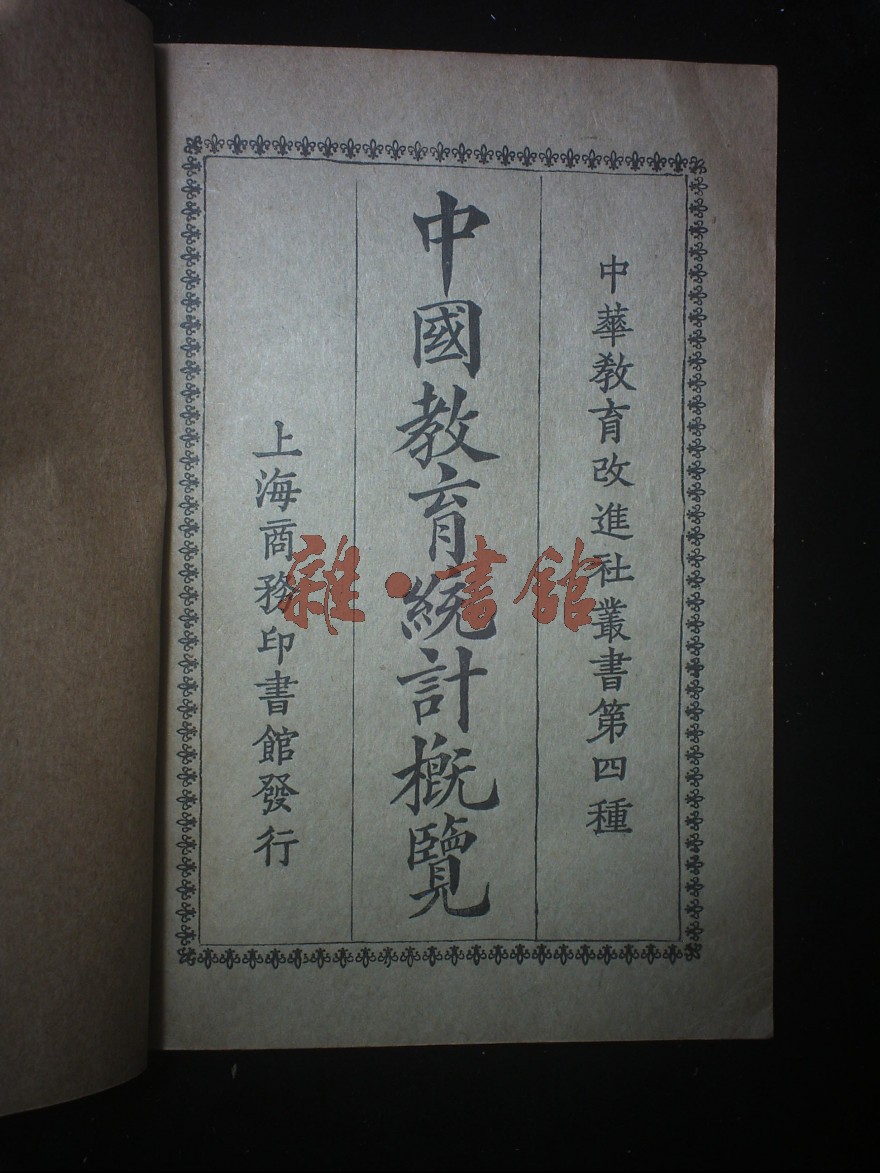 中華教育改進社叢書第四種
中國教育統計概覽
上海商務印書館發行
雜·書館